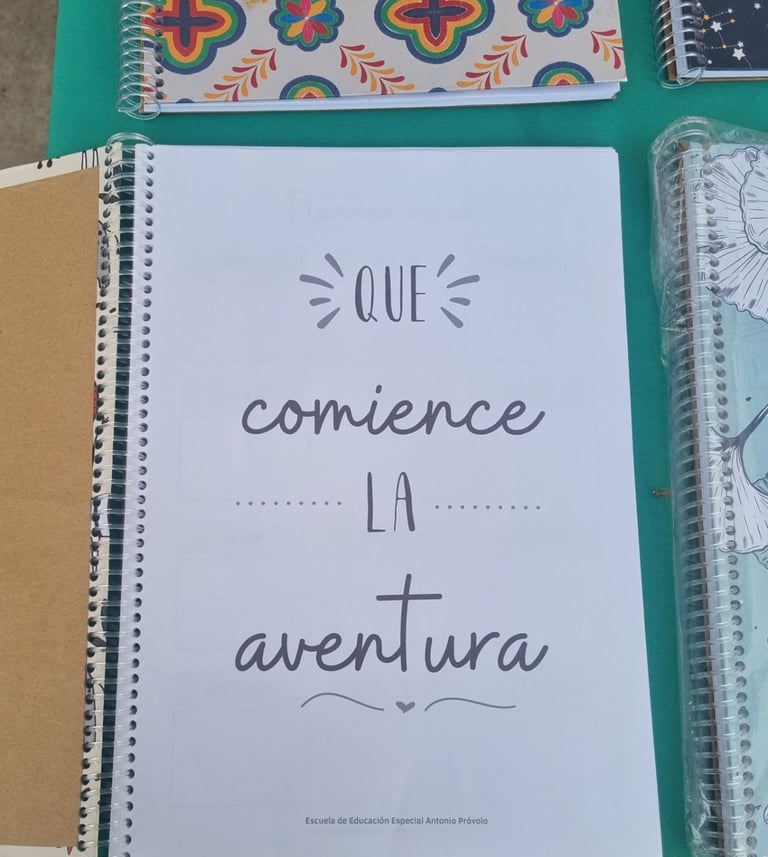 QUE
comience
LA
aventura
Escuela de Educación Especial Antonio Próvolo